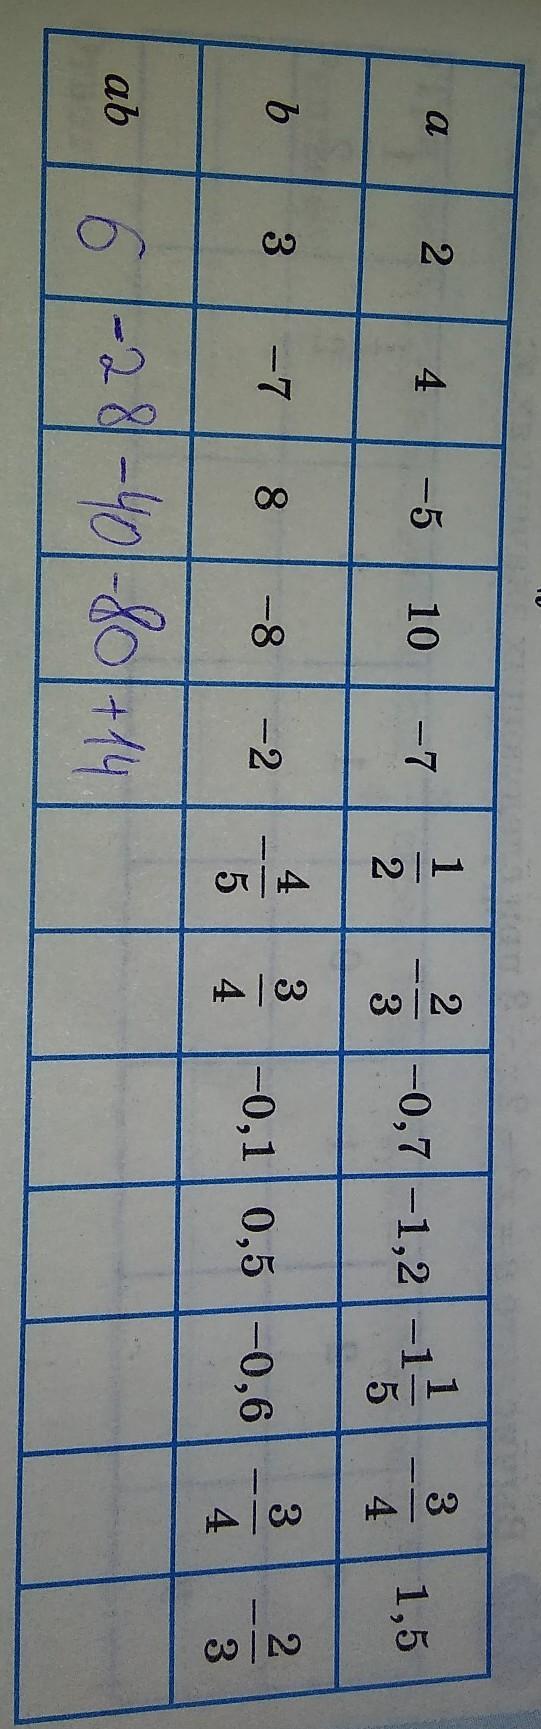 a 2 4 −5 10 −7 1/2 −2/3 −0,7 −1,2 −1 1/5 −3/4 1,5
b 3 −7 8 −8 −2 −4/5 3/4 −0,1 0,5 −0,6 −3/4 −2/3
ab 6 -28 -40 -80 +14